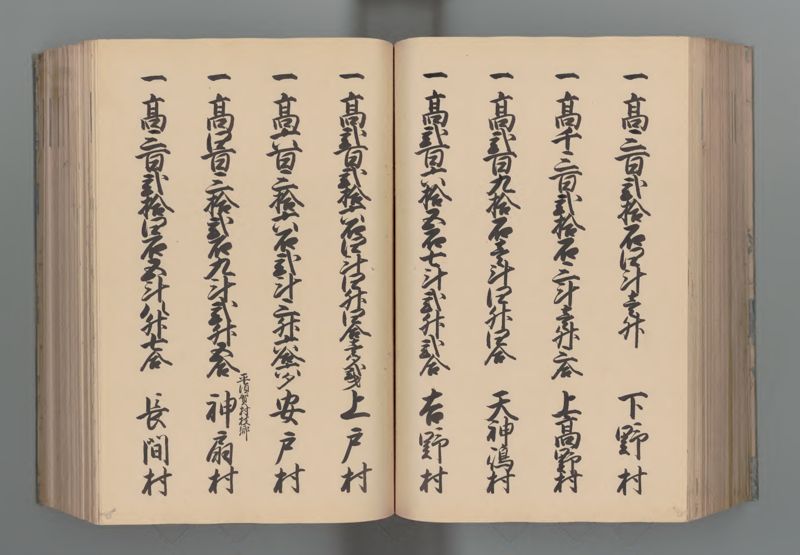 一 高三百弐拾石四斗壱升 下野村
一 高千三百弐拾石三斗壱升三合 上高野村
一 高弐百九拾石壱斗四升四合 天神嶋村
一 高弐百六拾五石七斗弐升弐合 吉野村
一 高弐百弐拾六石四斗四升四合壱勺 上戸村
一 高六百三拾六石弐斗三升六合 安戸村
平須賀村枝郷
一 高四百三拾弐石九斗弐升五合 神扇村
一 高三百弐拾四石五斗八升七合 長間村